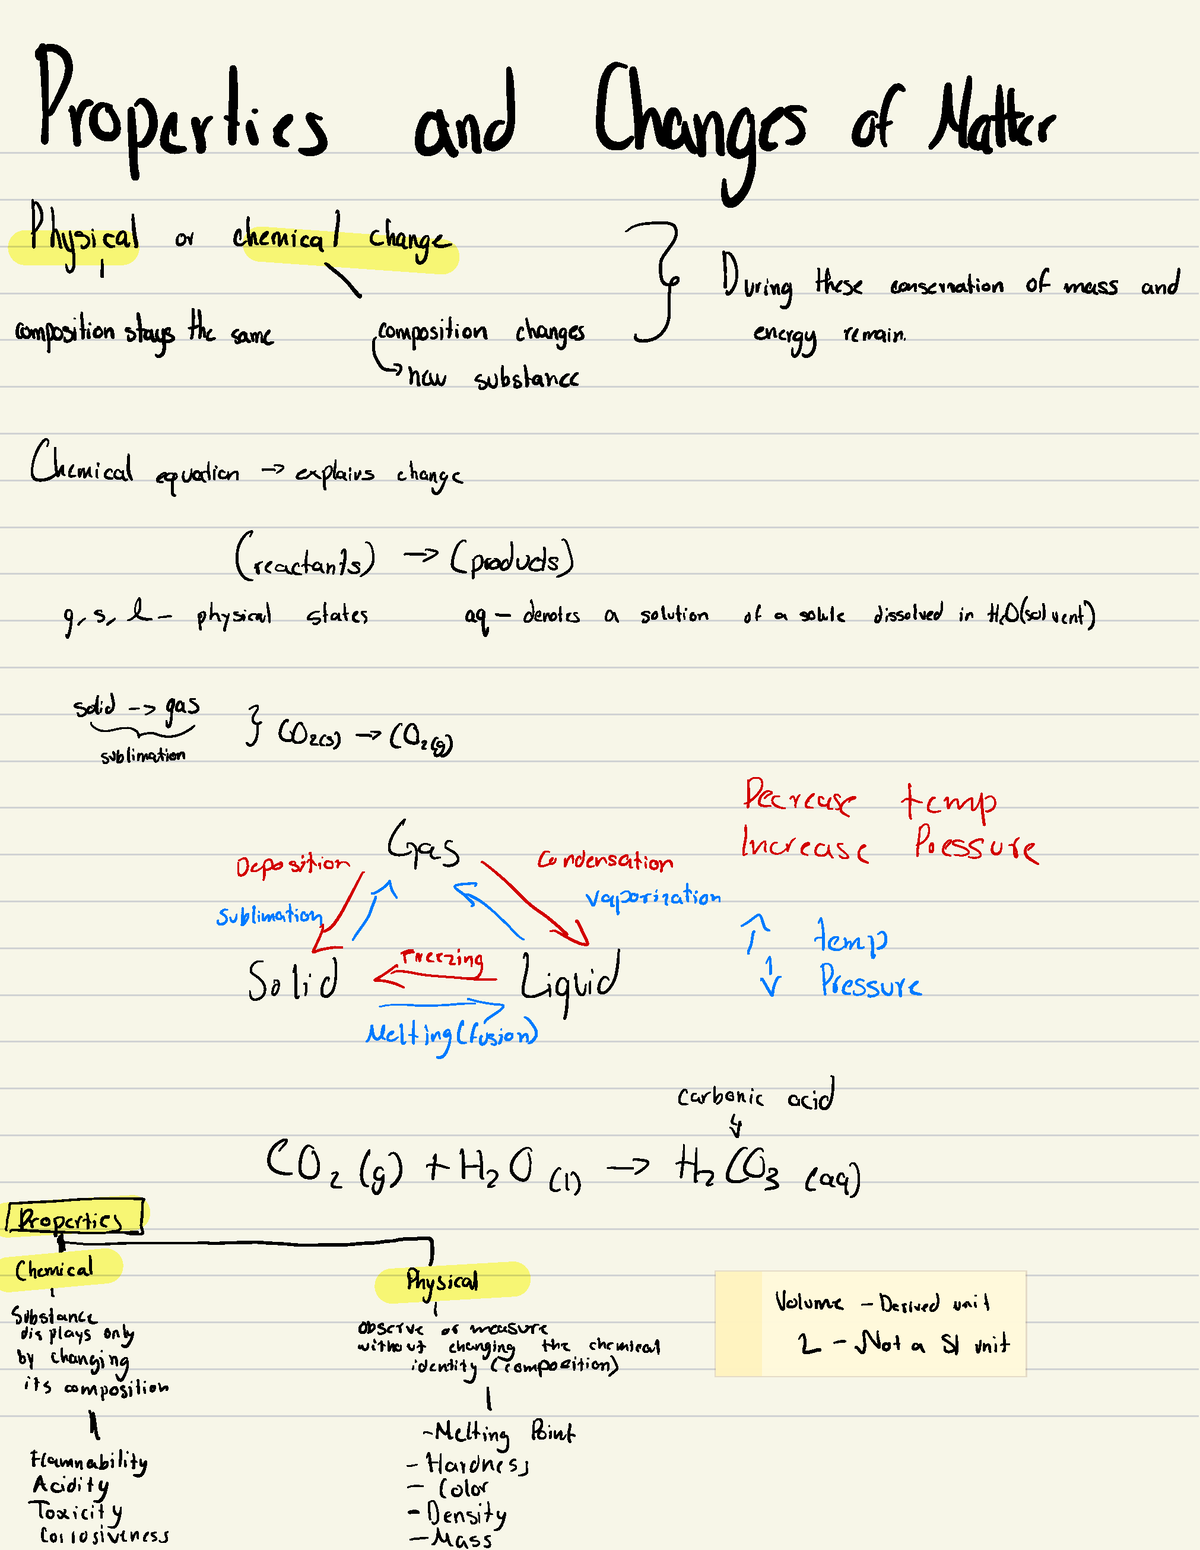 Properties and Changes of Matter
Physical or chemical change
composition stays the same
composition changes
→ new substance
During these conservation of mass and
energy remain.
Chemical equation → explains change
(reactants) → (products)
g, s, l – physical states
aq – denotes a solution of a solute dissolved in H₂O (solvent)
solid → gas
sublimation
} CO₂(s) → CO₂(g)
Decrease temp
Increase Pressure
Gas
Deposition
Condensation
Sublimation
Vaporization
↑ temp
↓ Pressure
Freezing
Solid
Liquid
Melting (fusion)
carbonic acid
CO₂ (g) + H₂O (l) → H₂CO₃ (aq)
Properties
Chemical
Substance
displays only
by changing
its composition
Flamnability
Acidity
Toxicity
Corrosiveness
Physical
observe or measure
without changing the chemical
identity (composition)
- Melting Point
- Hardness
- Color
- Density
- Mass
Volume – Derived unit
L – Not a SI unit